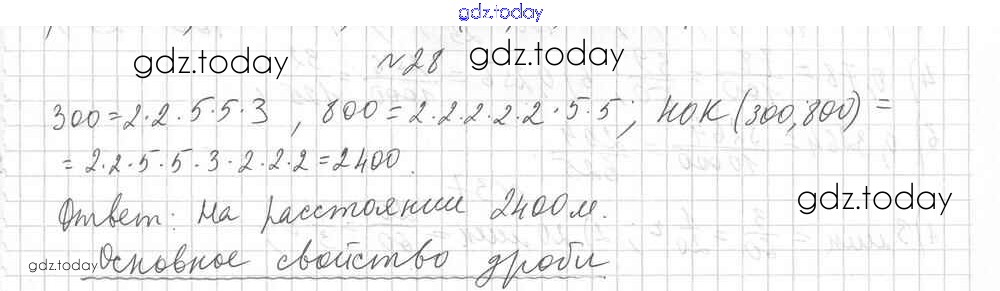 gdz.today
gdz.today №28 gdz.today
300=2·2·5·5·3, 800=2·2·2·2·2·5·5; НОК(300;800)=
=2·2·5·5·3·2·2·2=2400.
gdz.today
Ответ: на расстоянии 2400м.
gdz.today Основное свойство дроби